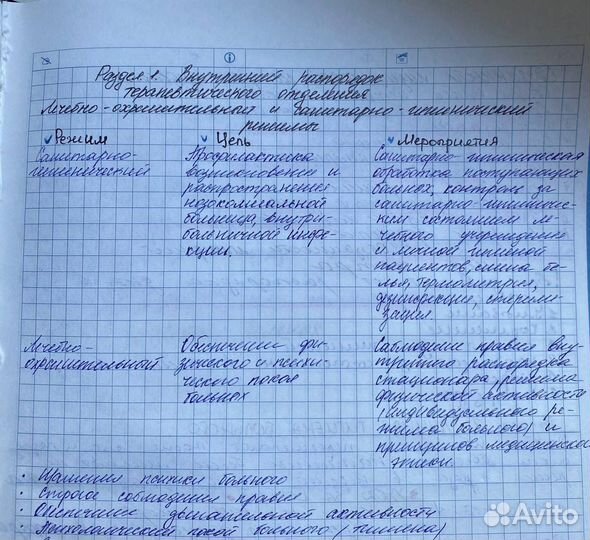 Раздел 1. Внутренний распорядок
терапевтического отделения
Лечебно-охранительный и санитарно-гигиенический
режимы
Режим Цель Мероприятия
Санитарно-
гигиенический
Профилактика
возникновения и
распространения
больница, внутри-
больничной инфе-
кции.
Санитарно-гигиеническая
обработка поступающих
больных, контроль за
санитарно-гигиениче-
ким состоянием ле-
чебного учреждения
и личной гигиеной
пациентов, смена бе-
лья, термометрия,
дезинфекция, стерили-
зация
Лечебно-
охранительный
Обеспечение фи-
зического и психи-
ческого покоя
больных
Соблюдение правил вну-
треннего распорядка
стационара, режима
физической активности
(индивидуального ре-
жима больного) и
принципов медицинской
этики.
· Щажения психики больного
· Строгое соблюдение правил
· Обеспечение двигательной активности
· Психологический покой больного (тишина)
Avito